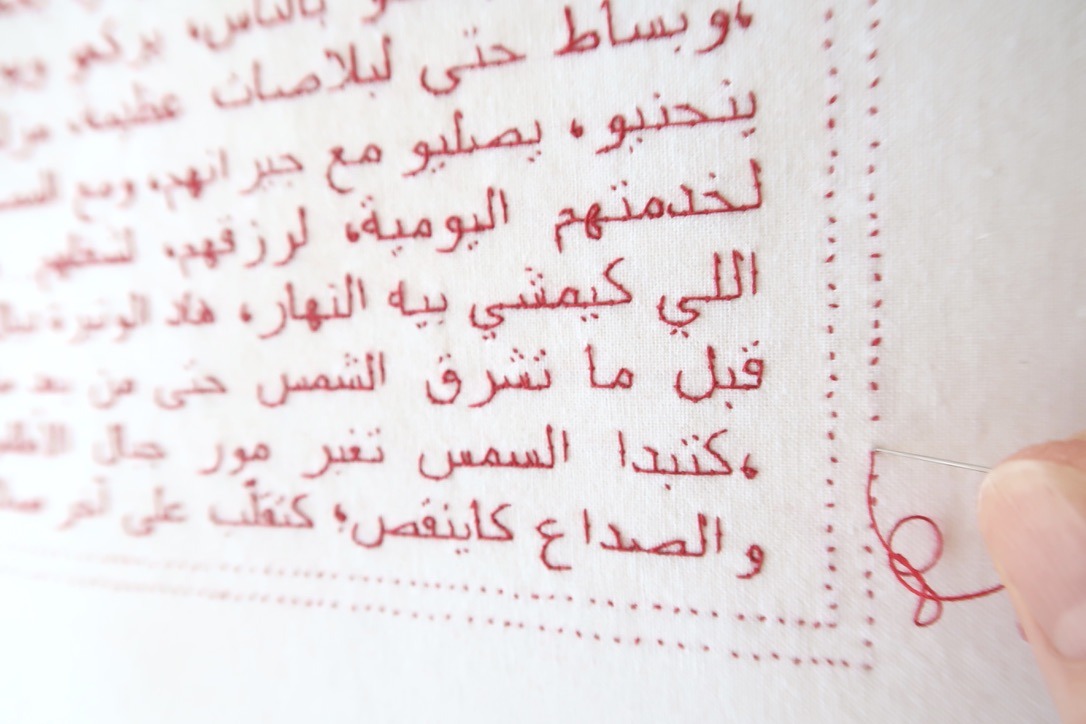 بالناس، بركعو
،وبساط حتى لبلاصات عظيمة،
ينحنيو، يصليو مع جيرانهم، ومع
لخدمتهم اليومية، لرزقهم، لشغلهم
اللي كيمشي بيه النهار، هاد الوتيرة
قبل ما تشرق الشمس حتى من بعد
،كتبدا السمس تغبر مور جبال الأطلس
والصداع كاينقص، كنقلّب على آخر